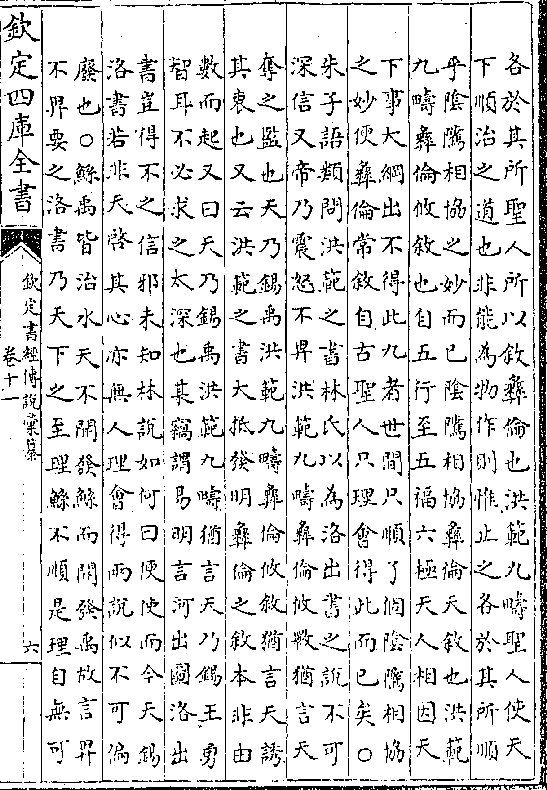 各於其所聖人所以敘彞倫也洪範九疇聖人使天
下順治之道也非能為物作則惟止之各於其所順
乎陰隲相協之妙而已陰隲相協彞倫天敘也洪範
九疇彞倫攸敘也自五行至五福六極天人相因天
下事大綱出不得此九者世間只順了個陰隲相協
之妙便彞倫常敘自古聖人只理會得此而已矣○
朱子語類問洪範之書林氏以為洛出書之說不可
深信又帝乃震怒不畀洪範九疇彞倫攸斁猶言天
奪之鑒也天乃錫禹洪範九疇彞倫攸敘猶言天誘
其衷也又云洪範之書大抵發明彞倫之敘本非由
數而起又曰天乃錫禹洪範九疇猶言天乃錫王勇
智耳不必求之太深也某竊謂易明言河出圖洛出
書豈得不之信邪未知林說如何曰便使而今天錫
洛書若非天啓其心亦無人理會得兩說似不可偏
廢也○鯀禹皆治水天不開發鯀而開發禹故言畀
不畀要之洛書乃天下之至理鯀不順是理自無可
欽定四庫全書
欽定書經傳說彙纂
卷十一
六